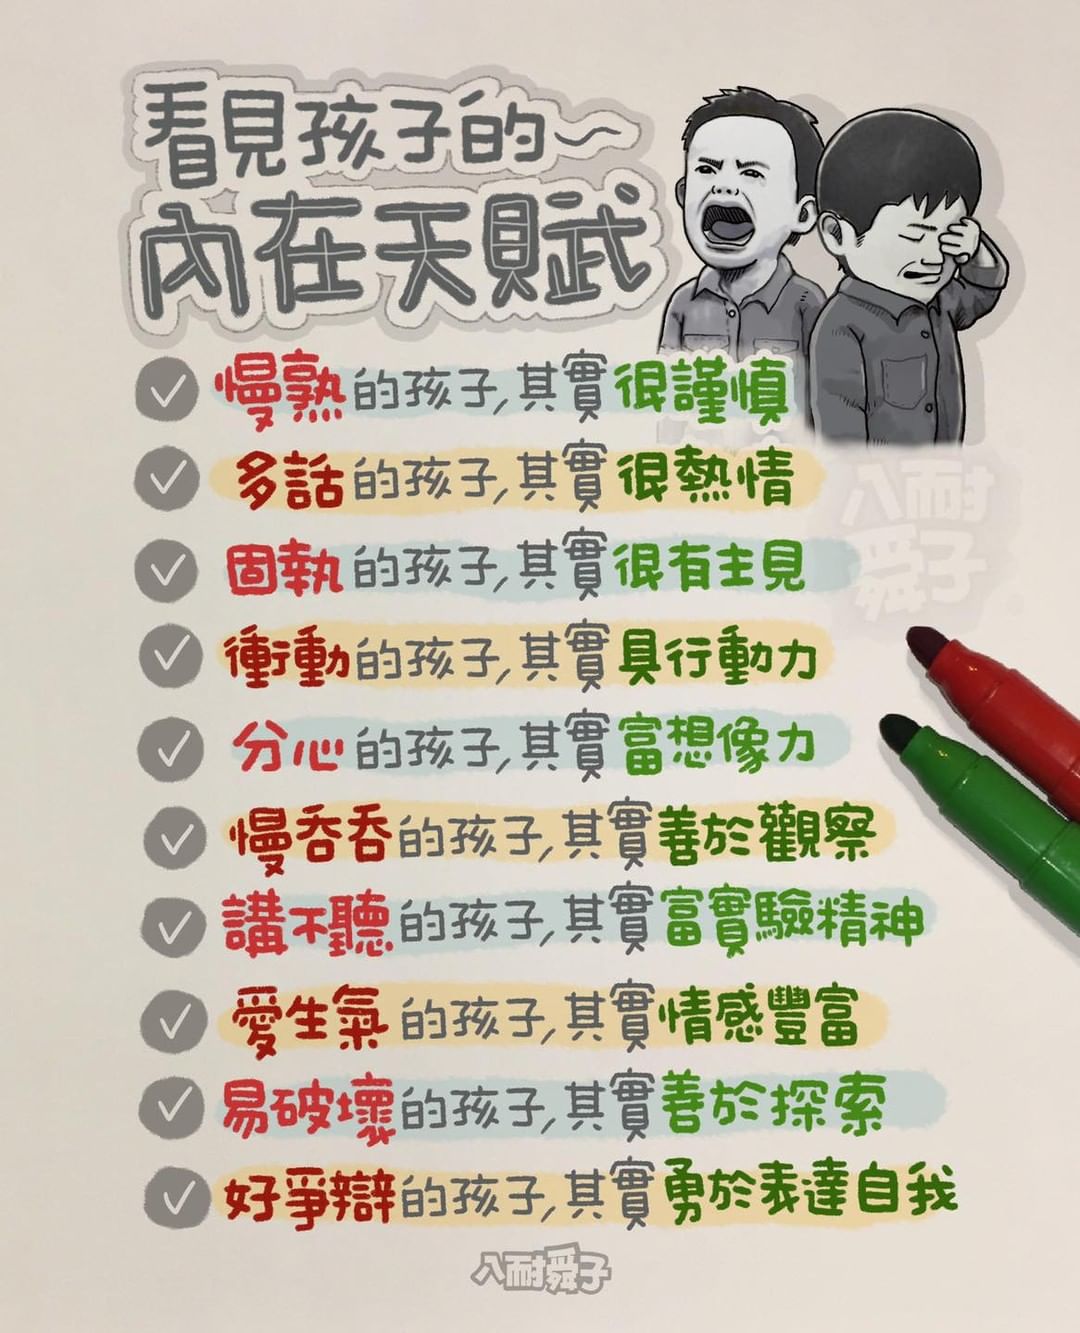 看見孩子的～
內在天賦
慢熟的孩子,其實很謹慎
多話的孩子,其實很熱情
固執的孩子,其實很有主見
衝動的孩子,其實具行動力
分心的孩子,其實富想像力
慢吞吞的孩子,其實善於觀察
講不聽的孩子,其實富實驗精神
愛生氣的孩子,其實情感豐富
易破壞的孩子,其實善於探索
好爭辯的孩子,其實勇於表達自我
八耐
舜子
八耐舜子